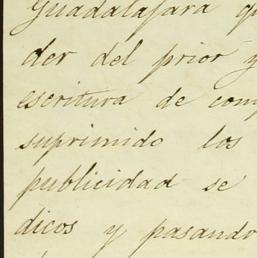 Guadalajara
der del prior y
escritura de
suprimido los
publicidad se
dicos y pasando